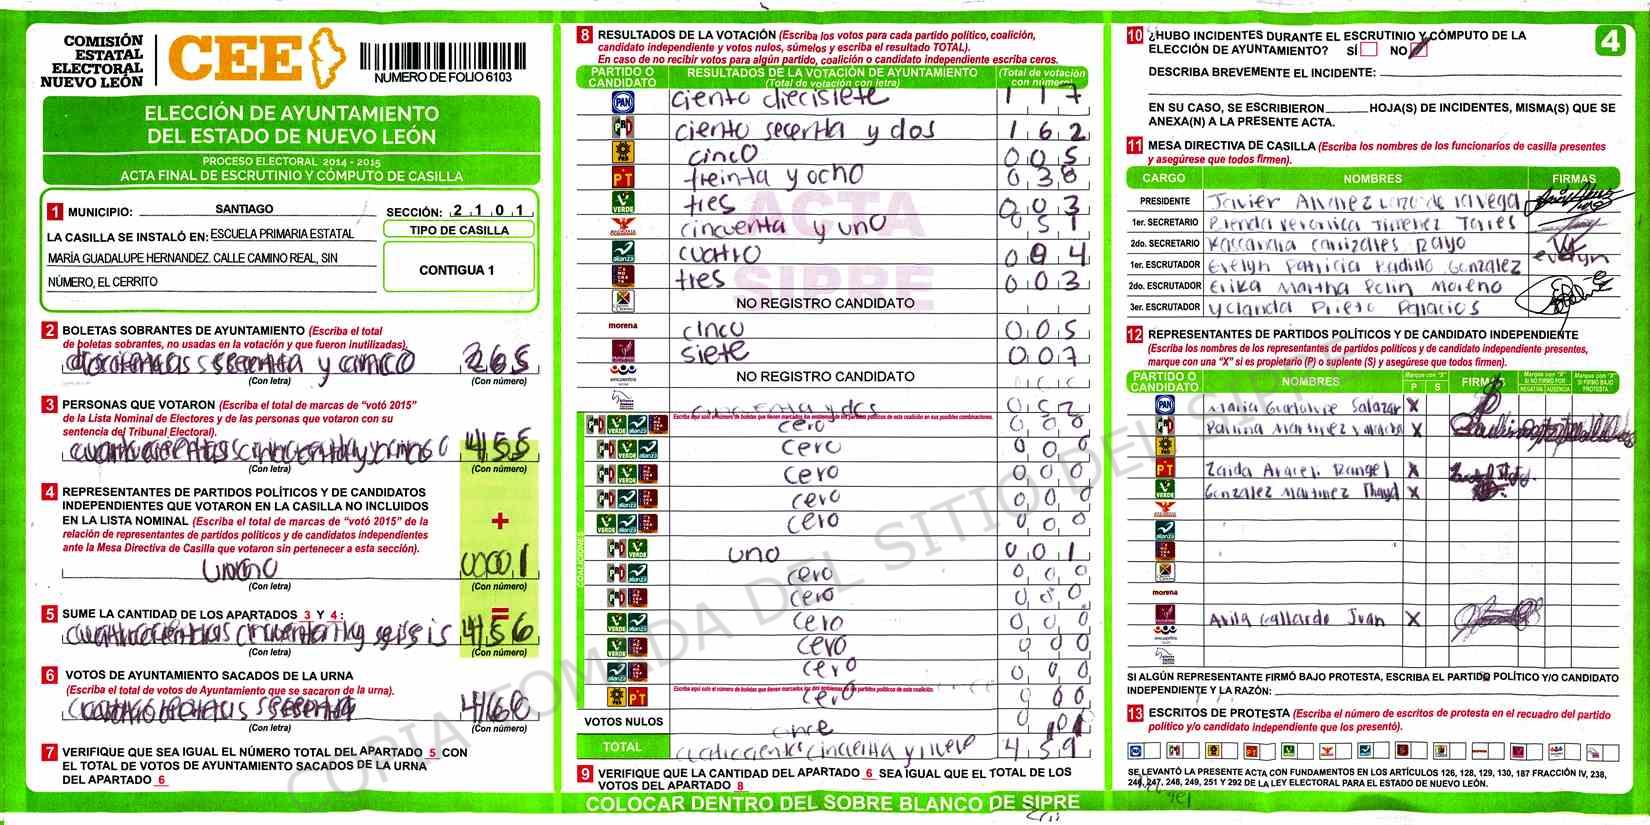 COMISIÓN
ESTATAL
ELECTORAL
NUEVO LEÓN
CEE
NUMERO DE FOLIO 6103
ELECCIÓN DE AYUNTAMIENTO
DEL ESTADO DE NUEVO LEÓN
PROCESO ELECTORAL 2014 - 2015
ACTA FINAL DE ESCRUTINIO Y CÓMPUTO DE CASILLA
1 MUNICIPIO: SANTIAGO SECCIÓN: 2 1 0 1
LA CASILLA SE INSTALÓ EN: ESCUELA PRIMARIA ESTATAL
MARÍA GUADALUPE HERNANDEZ. CALLE CAMINO REAL, SIN
NÚMERO, EL CERRITO
TIPO DE CASILLA
CONTIGUA 1
2 BOLETAS SOBRANTES DE AYUNTAMIENTO (Escriba el total
de boletas sobrantes, no usadas en la votación y que fueron inutilizadas).
y cinco 265
(Con letra) (Con número)
3 PERSONAS QUE VOTARON (Escriba el total de marcas de "votó 2015"
de la Lista Nominal de Electores y de las personas que votaron con su
sentencia del Tribunal Electoral).
455
(Con letra) (Con número)
4 REPRESENTANTES DE PARTIDOS POLÍTICOS Y DE CANDIDATOS
INDEPENDIENTES QUE VOTARON EN LA CASILLA NO INCLUIDOS
EN LA LISTA NOMINAL (Escriba el total de marcas de "votó 2015" de la
relación de representantes de partidos políticos y de candidatos independientes
ante la Mesa Directiva de Casilla que votaron sin pertenecer a esta sección).
+
(Con letra) (Con número)
5 SUME LA CANTIDAD DE LOS APARTADOS 3 Y 4:
=
456
(Con letra) (Con número)
6 VOTOS DE AYUNTAMIENTO SACADOS DE LA URNA
(Escriba el total de votos de Ayuntamiento que se sacaron de la urna).
(Con letra) (Con número)
7 VERIFIQUE QUE SEA IGUAL EL NÚMERO TOTAL DEL APARTADO 5 CON
EL TOTAL DE VOTOS DE AYUNTAMIENTO SACADOS DE LA URNA
DEL APARTADO 6
8 RESULTADOS DE LA VOTACIÓN (Escriba los votos para cada partido político, coalición,
candidato independiente y votos nulos, súmelos y escriba el resultado TOTAL).
En caso de no recibir votos para algún partido, coalición o candidato independiente escriba ceros.
PARTIDO O CANDIDATO RESULTADOS DE LA VOTACIÓN DE AYUNTAMIENTO (Total de votación con letra) (Total de votación con número)
PAN ciento diecisiete 1 1 7
PRD ciento secenta y dos 1 6 2
PRD cinco 0 0 5
PT treinta y ocho 0 3 8
VERDE tres 0 0 3
cincuenta y uno 0 5 1
alianza cuatro 0 0 4
tres 0 0 3
NO REGISTRO CANDIDATO
morena cinco 0 0 5
siete 0 0 7
encuentro NO REGISTRO CANDIDATO
0 5 2
cero 0 0 0
cero 0 0 0
cero 0 0 0
cero 0 0 0
cero 0 0 0
uno 0 0 1
cero 0 0 0
cero 0 0 0
cero 0 0 0
cero 0 0 0
cero 0 0 0
cero 0 0
VOTOS NULOS
TOTAL 4 5 9
9 VERIFIQUE QUE LA CANTIDAD DEL APARTADO 6 SEA IGUAL QUE EL TOTAL DE LOS
VOTOS DEL APARTADO 8
COLOCAR DENTRO DEL SOBRE BLANCO DE SIPRE
ACTA
SIPRE
COPIA TOMADA DEL SITIO DEL SIPRE
10 ¿HUBO INCIDENTES DURANTE EL ESCRUTINIO Y CÓMPUTO DE LA
ELECCIÓN DE AYUNTAMIENTO? SÍ NO
4
DESCRIBA BREVEMENTE EL INCIDENTE:
EN SU CASO, SE ESCRIBIERON HOJA(S) DE INCIDENTES, MISMA(S) QUE SE
ANEXA(N) A LA PRESENTE ACTA.
11 MESA DIRECTIVA DE CASILLA (Escriba los nombres de los funcionarios de casilla presentes
y asegúrese que todos firmen).
CARGO NOMBRES FIRMAS
PRESIDENTE Javier Alvarez
1er. SECRETARIO Brenda Veronica Jimenez Torres
2do. SECRETARIO Kassandra Canizales Rayo
1er. ESCRUTADOR Evelyn Patricia Padillo Gonzalez evelyn
2do. ESCRUTADOR Erika Martha Moreno
3er. ESCRUTADOR Yolanda Prieto Palacios
12 REPRESENTANTES DE PARTIDOS POLÍTICOS Y DE CANDIDATO INDEPENDIENTE
(Escriba los nombres de los representantes de partidos políticos y de candidato independiente presentes,
marque con una "X" si es propietario (P) o suplente (S) y asegúrese que todos firmen).
PARTIDO O CANDIDATO NOMBRES Marque con "X" P S FIRMAS Marque con "X" SI NO FIRMÓ POR NEGATIVA AUSENCIA Marque con "X" SI FIRMÓ BAJO PROTESTA
PAN Maria Guadalupe Salazar X
Paulina Martinez X
PT Zaida Araceli Rangel X
VERDE Gonzalez Martinez X
morena
Avila Gallardo Juan X
SI ALGÚN REPRESENTANTE FIRMÓ BAJO PROTESTA, ESCRIBA EL PARTIDO POLÍTICO Y/O CANDIDATO
INDEPENDIENTE Y LA RAZÓN:
13 ESCRITOS DE PROTESTA (Escriba el número de escritos de protesta en el recuadro del partido
político y/o candidato independiente que los presentó).
SE LEVANTÓ LA PRESENTE ACTA CON FUNDAMENTOS EN LOS ARTÍCULOS 126, 128, 129, 130, 187 FRACCIÓN IV, 238,
247, 248, 249, 251 Y 292 DE LA LEY ELECTORAL PARA EL ESTADO DE NUEVO LEÓN.